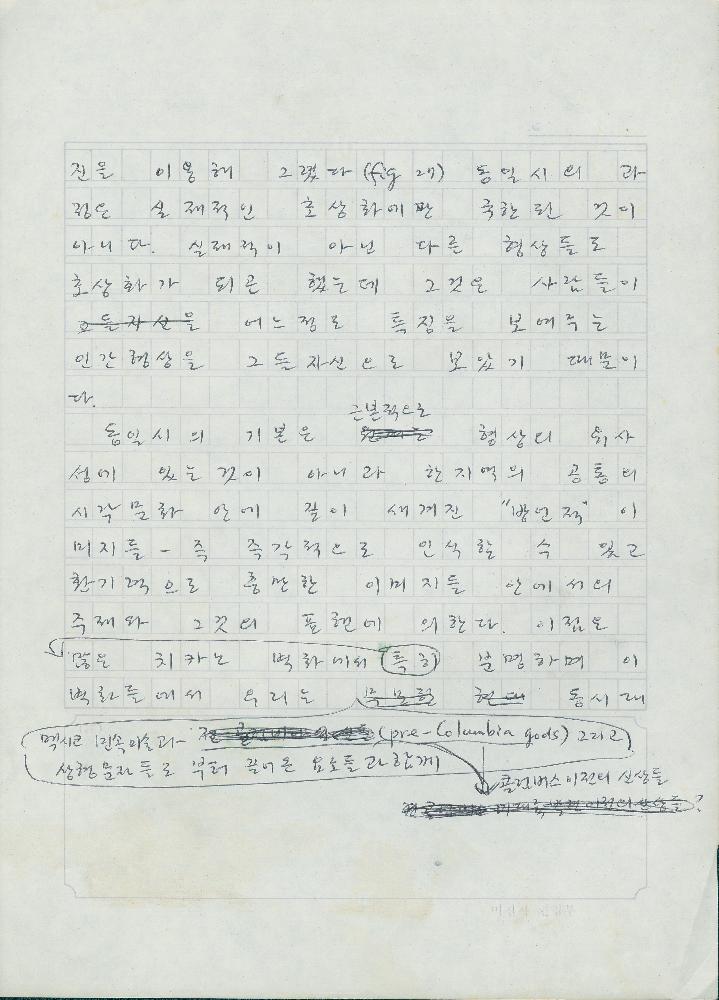 진을 이용해 그렸다 (fig 27) 동일시의 과
정은 실재적인 초상화에만 국한된 것이
아니다. 실재적이 아닌 다른 형상들도
초상화가 되곤 했는데 그것은 사람들이
그들자신을 어느정도 특징을 보여주는
인간형상을 그들자신으로 보았기 때문이
다.
근본적으로
동일시의 기본은 형상의 유사
성에 있는것이 아니라 한지역의 공통의
시각문화 안에 깊이 새겨진 "방언적" 이
미지들 - 즉 즉각적으로 인식할 수 있고
환기력으로 충만한 이미지들 안에서의
주제와 그것의 표현에 의한다. 이점은
많은 치카노 벽화에서 특히 분명하며 이
벽화들에서 우리는 동시대
멕시코 민속미술과 (pre-Columbia gods) 그리고
상형문자들로 부터 끌어온 요소들과 함께
콜럼버스 이전의 신상들
?